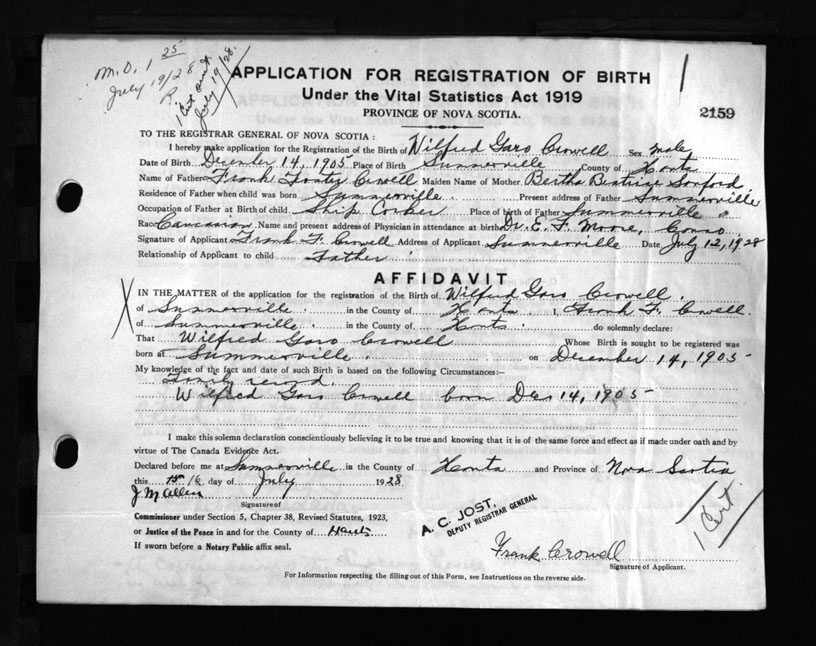 M.O. 1 25
July 19/28
R.
1 Cert out
July 19/28.
APPLICATION FOR REGISTRATION OF BIRTH
Under the Vital Statistics Act 1919
PROVINCE OF NOVA SCOTIA.
2159
TO THE REGISTRAR GENERAL OF NOVA SCOTIA :
I hereby make application for the Registration of the Birth of Wilfred Garo Crowell Sex male
Date of Birth December 14, 1905 Place of Birth Summerville County of Hants
Name of Father Frank Foster Crowell Maiden Name of Mother Bertha Beatrice Sanford
Residence of Father when child was born Summerville Present address of Father Summerville
Occupation of Father at Birth of child Ship Corker Place of birth of Father Summerville
Race Caucasian Name and present address of Physician in attendance at birth Dr. E. F. Moore,
Signature of Applicant Frank F. Crowell Address of Applicant Summerville Date July 12, 1928
Relationship of Applicant to child Father
AFFIDAVIT
IN THE MATTER of the application for the registration of the Birth of Wilfred Garo Crowell.
of Summerville in the County of Hants I, Frank F. Crowell
of Summerville in the County of Hants do solemnly declare:
That Wilfred Garo Crowell Whose Birth is sought to be registered was
born at Summerville on December 14, 1905
My knowledge of the fact and date of such Birth is based on the following Circumstances:—
Family record.
Wilfred Garo Crowell born Dec 14, 1905
I make this solemn declaration conscientiously believing it to be true and knowing that it is of the same force and effect as if made under oath and by
virtue of The Canada Evidence Act.
Declared before me at Summerville in the County of Hants and Province of Nova Scotia
this day of July 1928
J M Allen
Signature of
Commissioner under Section 5, Chapter 38, Revised Statutes, 1923,
or Justice of the Peace in and for the County of Hants
If sworn before a Notary Public affix seal.
A. C. JOST,
DEPUTY REGISTRAR GENERAL
1 Cert.
Frank Crowell
Signature of Applicant.
For Information respecting the filling out of this Form, see Instructions on the reverse side.